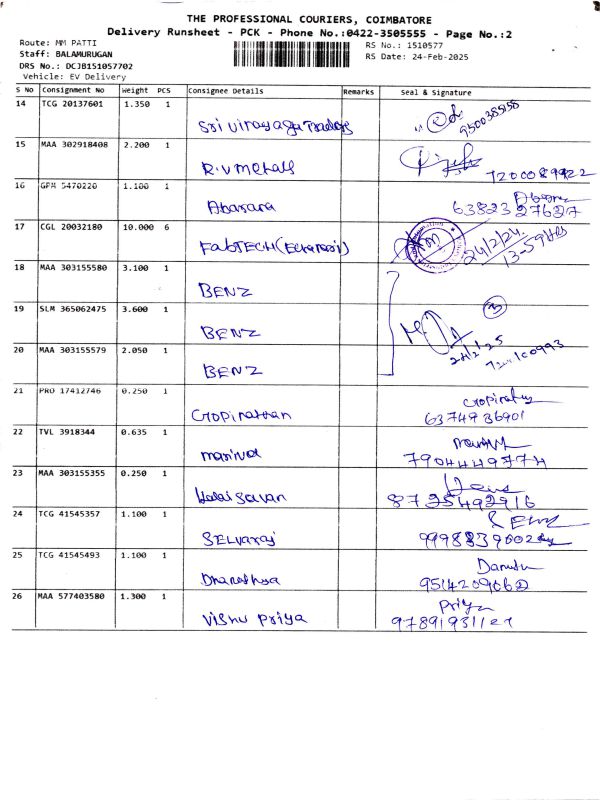 THE PROFESSIONAL COURIERS, COIMBATORE
Delivery Runsheet - PCK - Phone No.:0422-3505555 - Page No.:2
Route: MM PATTI
RS No.: 1510577
Staff: BALAMURUGAN
RS Date: 24-Feb-2025
DRS No.: DCJB151057702
Vehicle: EV Delivery
S No Consignment No Weight PCS Consignee Details Remarks Seal & Signature
14 TCG 20137601 1.350 1
Sri Vinayaga Traders 9500385158
15 MAA 302918408 2.200 1
R.V metals 7200089922
16 GPM 5470220 1.100 1
Abarara 6382327627
17 CGL 20032180 10.000 6
FabTECH 24/2/24. 13-59 Hrs
18 MAA 303155580 3.100 1
BENZ
19 SLM 365062475 3.600 1
BENZ 3
24/2/25
20 MAA 303155579 2.050 1
BENZ
21 PRO 17412746 0.250 1
Gopirathan 6374936901
22 TVL 3918344 0.635 1
7904449774
23 MAA 303155355 0.250 1
8725492916
24 TCG 41545357 1.100 1
SELVaraj
25 TCG 41545493 1.100 1
9514209062
26 MAA 577403580 1.300 1
Priya
Vishu Priya